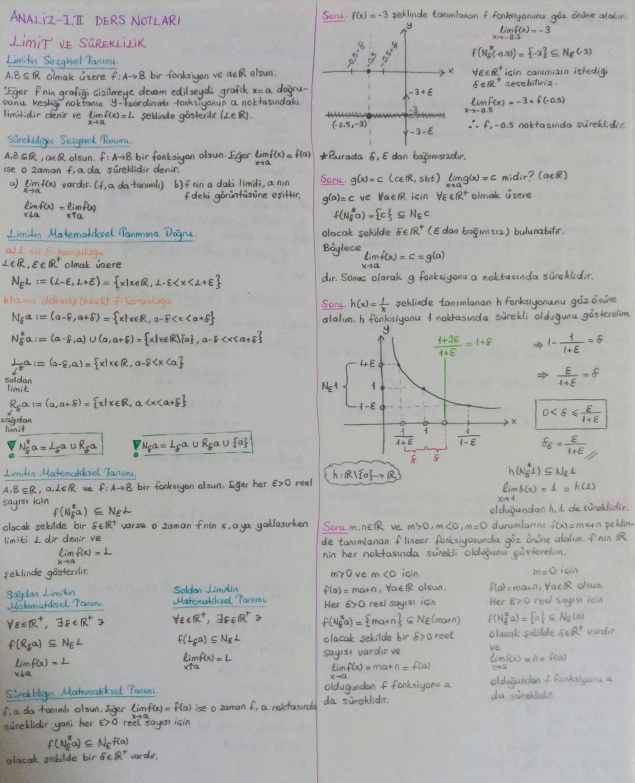 ANALİZ-I,II DERS NOTLARI
LİMİT VE SÜREKLİLİK
Limitin Sezgisel Tanımı.
A,B⊆ℝ olmak üzere f:A→B bir fonksiyon ve a∈ℝ olsun.
"Eğer f'nin grafiği çizilmeye devam edilseydi grafik x=a doğru-
sunu kestiği noktanın y-koordinatı fonksiyonun a noktasındaki
limitidir denir ve lim f(x)=L şeklinde gösterilir (L∈ℝ).
x→a
Sürekliliğin Sezgisel Tanımı.
A,B⊆ℝ, a∈ℝ olsun. f:A→B bir fonksiyon olsun. Eğer lim f(x)=f(a)
x→a
ise o zaman f, a da süreklidir denir.
a) lim f(x) vardır. (f, a da tanımlı) b) f nin a daki limiti, a nın
x→a
f deki görüntüsüne eşittir.
lim f(x) = lim f(x)
x↓a x↑a
Limitin Matematiksel Tanımına Doğru.
a) L nin ε-komşuluğu
L∈ℝ, ε∈ℝ⁺ olmak üzere
NεL := (L-ε, L+ε) = {x|x∈ℝ, L-ε<x<L+ε}
b) a nın delinmiş (kesik) δ-komşuluğu
Nδa := (a-δ, a+δ) = {x|x∈ℝ, a-δ<x<a+δ}
Nδ*a := (a-δ, a) ∪ (a, a+δ) = {x|x∈ℝ\{a}, a-δ<x<a+δ}
Lδa := (a-δ, a) = {x|x∈ℝ, a-δ<x<a}
soldan
limit
Rδa := (a, a+δ) = {x|x∈ℝ, a<x<a+δ}
sağdan
limit
! Nδ*a = Lδa ∪ Rδa ! Nδa = Lδa ∪ Rδa ∪ {a}
Limitin Matematiksel Tanımı.
A,B⊆ℝ, a,L∈ℝ ve f:A→B bir fonksiyon olsun. Eğer her ε>0 reel
sayısı için
f(Nδ*a) ⊆ NεL
olacak şekilde bir δ∈ℝ⁺ varsa o zaman f nin x, a ya yaklaşırken
limiti L dir denir ve
lim f(x) = L
x→a
şeklinde gösterilir.
Sağdan Limitin
Matematiksel Tanımı.
∀ε∈ℝ⁺, ∃δ∈ℝ⁺ ∋
f(Rδa) ⊆ NεL
lim f(x) = L
x↓a
Soldan Limitin
Matematiksel Tanımı.
∀ε∈ℝ⁺, ∃δ∈ℝ⁺ ∋
f(Lδa) ⊆ NεL
lim f(x) = L
x↑a
Sürekliliğin Matematiksel Tanımı.
f, a da tanımlı olsun. Eğer lim f(x) = f(a) ise o zaman f, a noktasında
x→a
süreklidir yani her ε>0 reel sayısı için
f(Nδa) ⊆ Nεf(a)
olacak şekilde bir δ∈ℝ⁺ vardır.
Soru. f(x) = -3 şeklinde tanımlanan f fonksiyonunu göz önüne alalım.
-0,5-δ
-0,5
-0,5+δ
y
x
-3+ε
-3
(-0.5,-3)
-3-ε
lim f(x) = -3
x→-0.5
f(Nδ*(-0.5)) = {-3} ⊆ Nε(-3)
∀ε∈ℝ⁺ için canımızın istediği
δ∈ℝ⁺ seçebiliriz.
lim f(x) = -3 = f(-0.5)
x→-0.5
∴ f, -0.5 noktasında süreklidir.
★Burada δ, ε dan bağımsızdır.
Soru. g(x) = c (c∈ℝ, sbt) lim g(x) = c midir? (a∈ℝ)
x→a
g(a) = c ve ∀a∈ℝ için ∀ε∈ℝ⁺ olmak üzere
f(Nδ*a) = {c} ⊆ Nεc
olacak şekilde δ∈ℝ⁺ (ε dan bağımsız) bulunabilir.
Böylece
lim f(x) = c = g(a)
x→a
dır. Sonuç olarak g fonksiyonu a noktasında süreklidir.
Soru. h(x) = 1/x şeklinde tanımlanan h fonksiyonunu göz önüne
alalım. h fonksiyonu 1 noktasında sürekli olduğunu gösterelim.
y
1+ε
Nε1
1
1-ε
1/(1+ε)
1
1/(1-ε)
x
δ δ
(1+2ε)/(1+ε) = 1+δ
⇒ 1 - 1/(1+ε) = δ
⇒ ε/(1+ε) = δ
0 < δ ≤ ε/(1+ε)
δε = ε/(1+ε)
h: ℝ\{0} → ℝ
h(Nδ*1) ⊆ Nε1
lim h(x) = 1 = h(1)
x→1
olduğundan h, 1 de süreklidir.
Soru. m,n∈ℝ ve m>0, m<0, m=0 durumlarını f(x)=mx+n şeklin-
de tanımlanan f lineer fonksiyonunda göz önüne alalım. f nin ℝ
nin her noktasında sürekli olduğunu gösterelim.
m>0 ve m<0 için
f(a) = ma+n, ∀a∈ℝ olsun.
Her ε>0 reel sayısı için
f(Nδ*a) = {ma+n} ⊆ Nε(ma+n)
olacak şekilde bir δ>0 reel
sayısı vardır ve
lim f(x) = ma+n = f(a)
x→a
olduğundan f fonksiyonu a
da süreklidir.
m=0 için
f(a) = ma+n, ∀a∈ℝ olsun.
Her ε>0 reel sayısı için
f(Nδ*a) = {n} ⊆ Nε(n)
olacak şekilde δ∈ℝ⁺ vardır
ve
lim f(x) = n = f(a)
x→a
olduğundan f fonksiyonu a
da süreklidir.